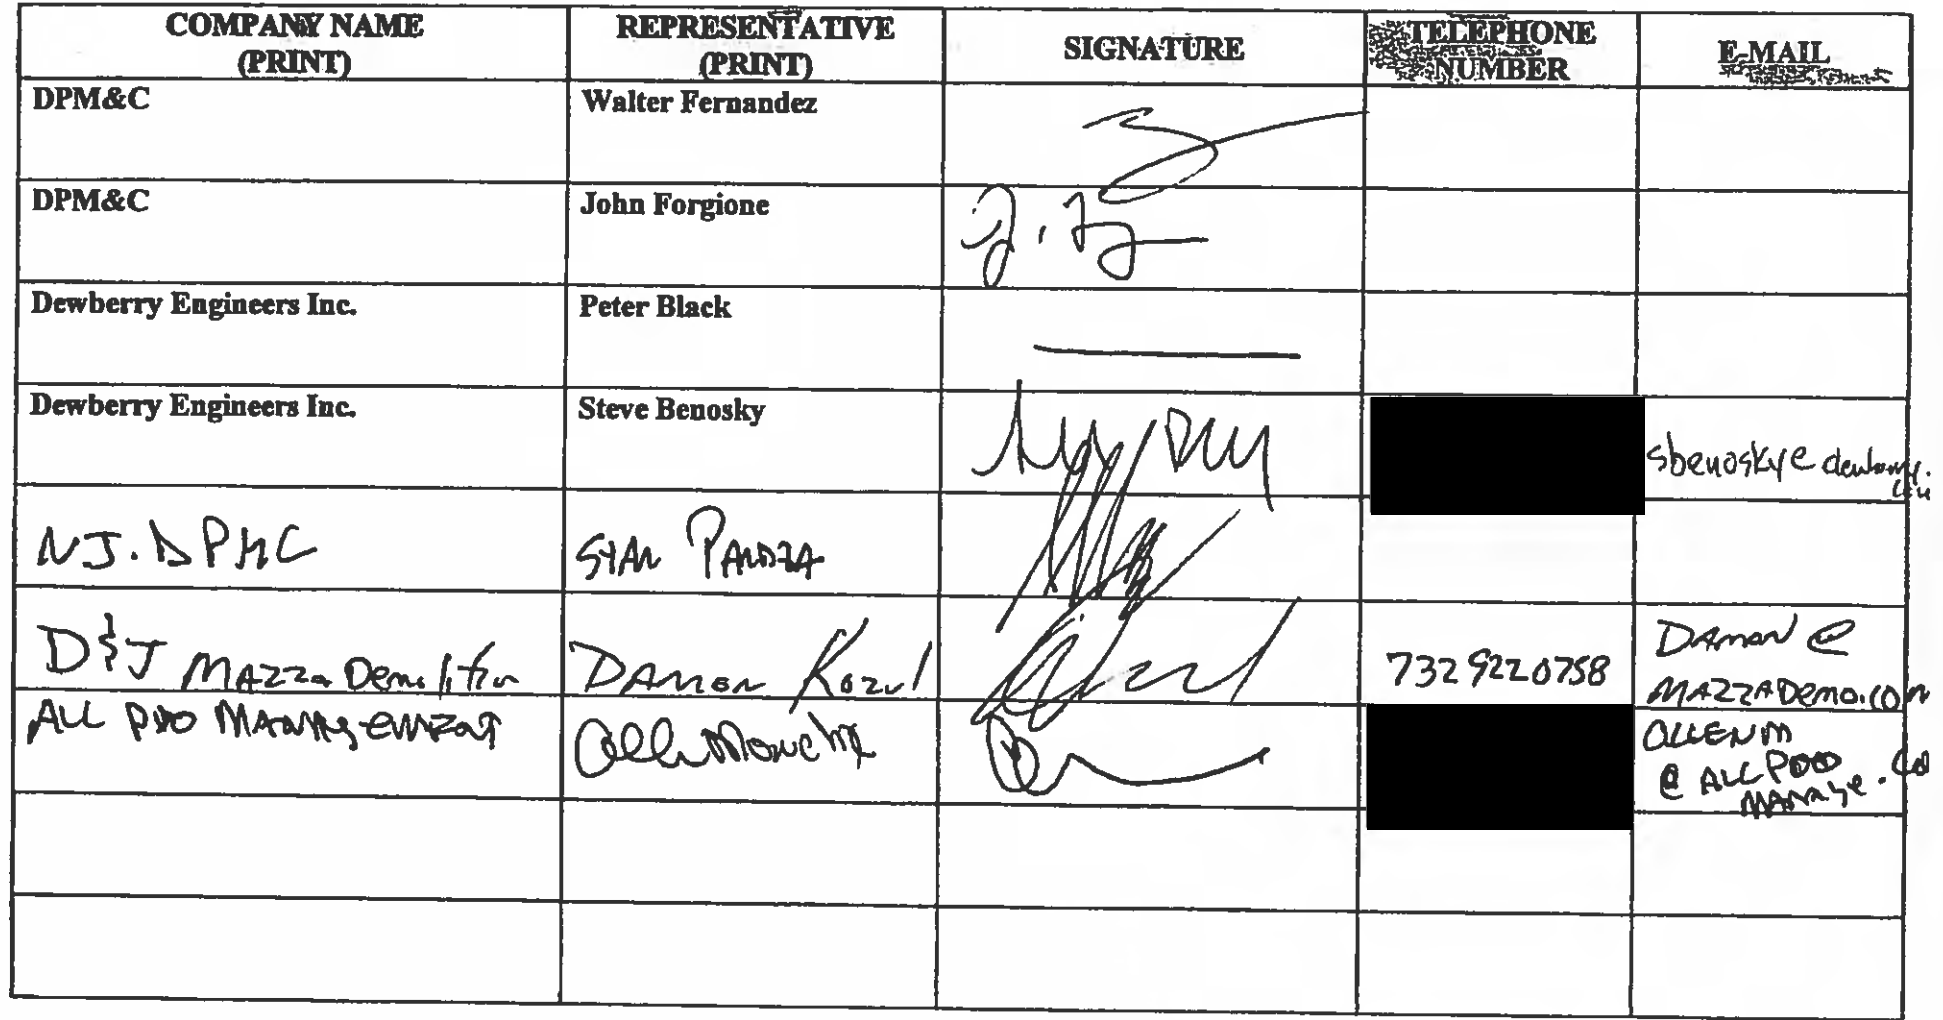 COMPANY NAME
(PRINT)
REPRESENTATIVE
(PRINT)
SIGNATURE
TELEPHONE
NUMBER
E-MAIL
DPM&C
Walter Fernandez
DPM&C
John Forgione
Dewberry Engineers Inc.
Peter Black
Dewberry Engineers Inc.
Steve Benosky
sbenosky@dewberry.
com
NJ. DPMC
D&J Mazza Demolition
Damon Kozul
732 922 0758
Damon @
MAZZADemo.com
ALL PRO Management
ALLENM
@ ALL PRO
Manage.co